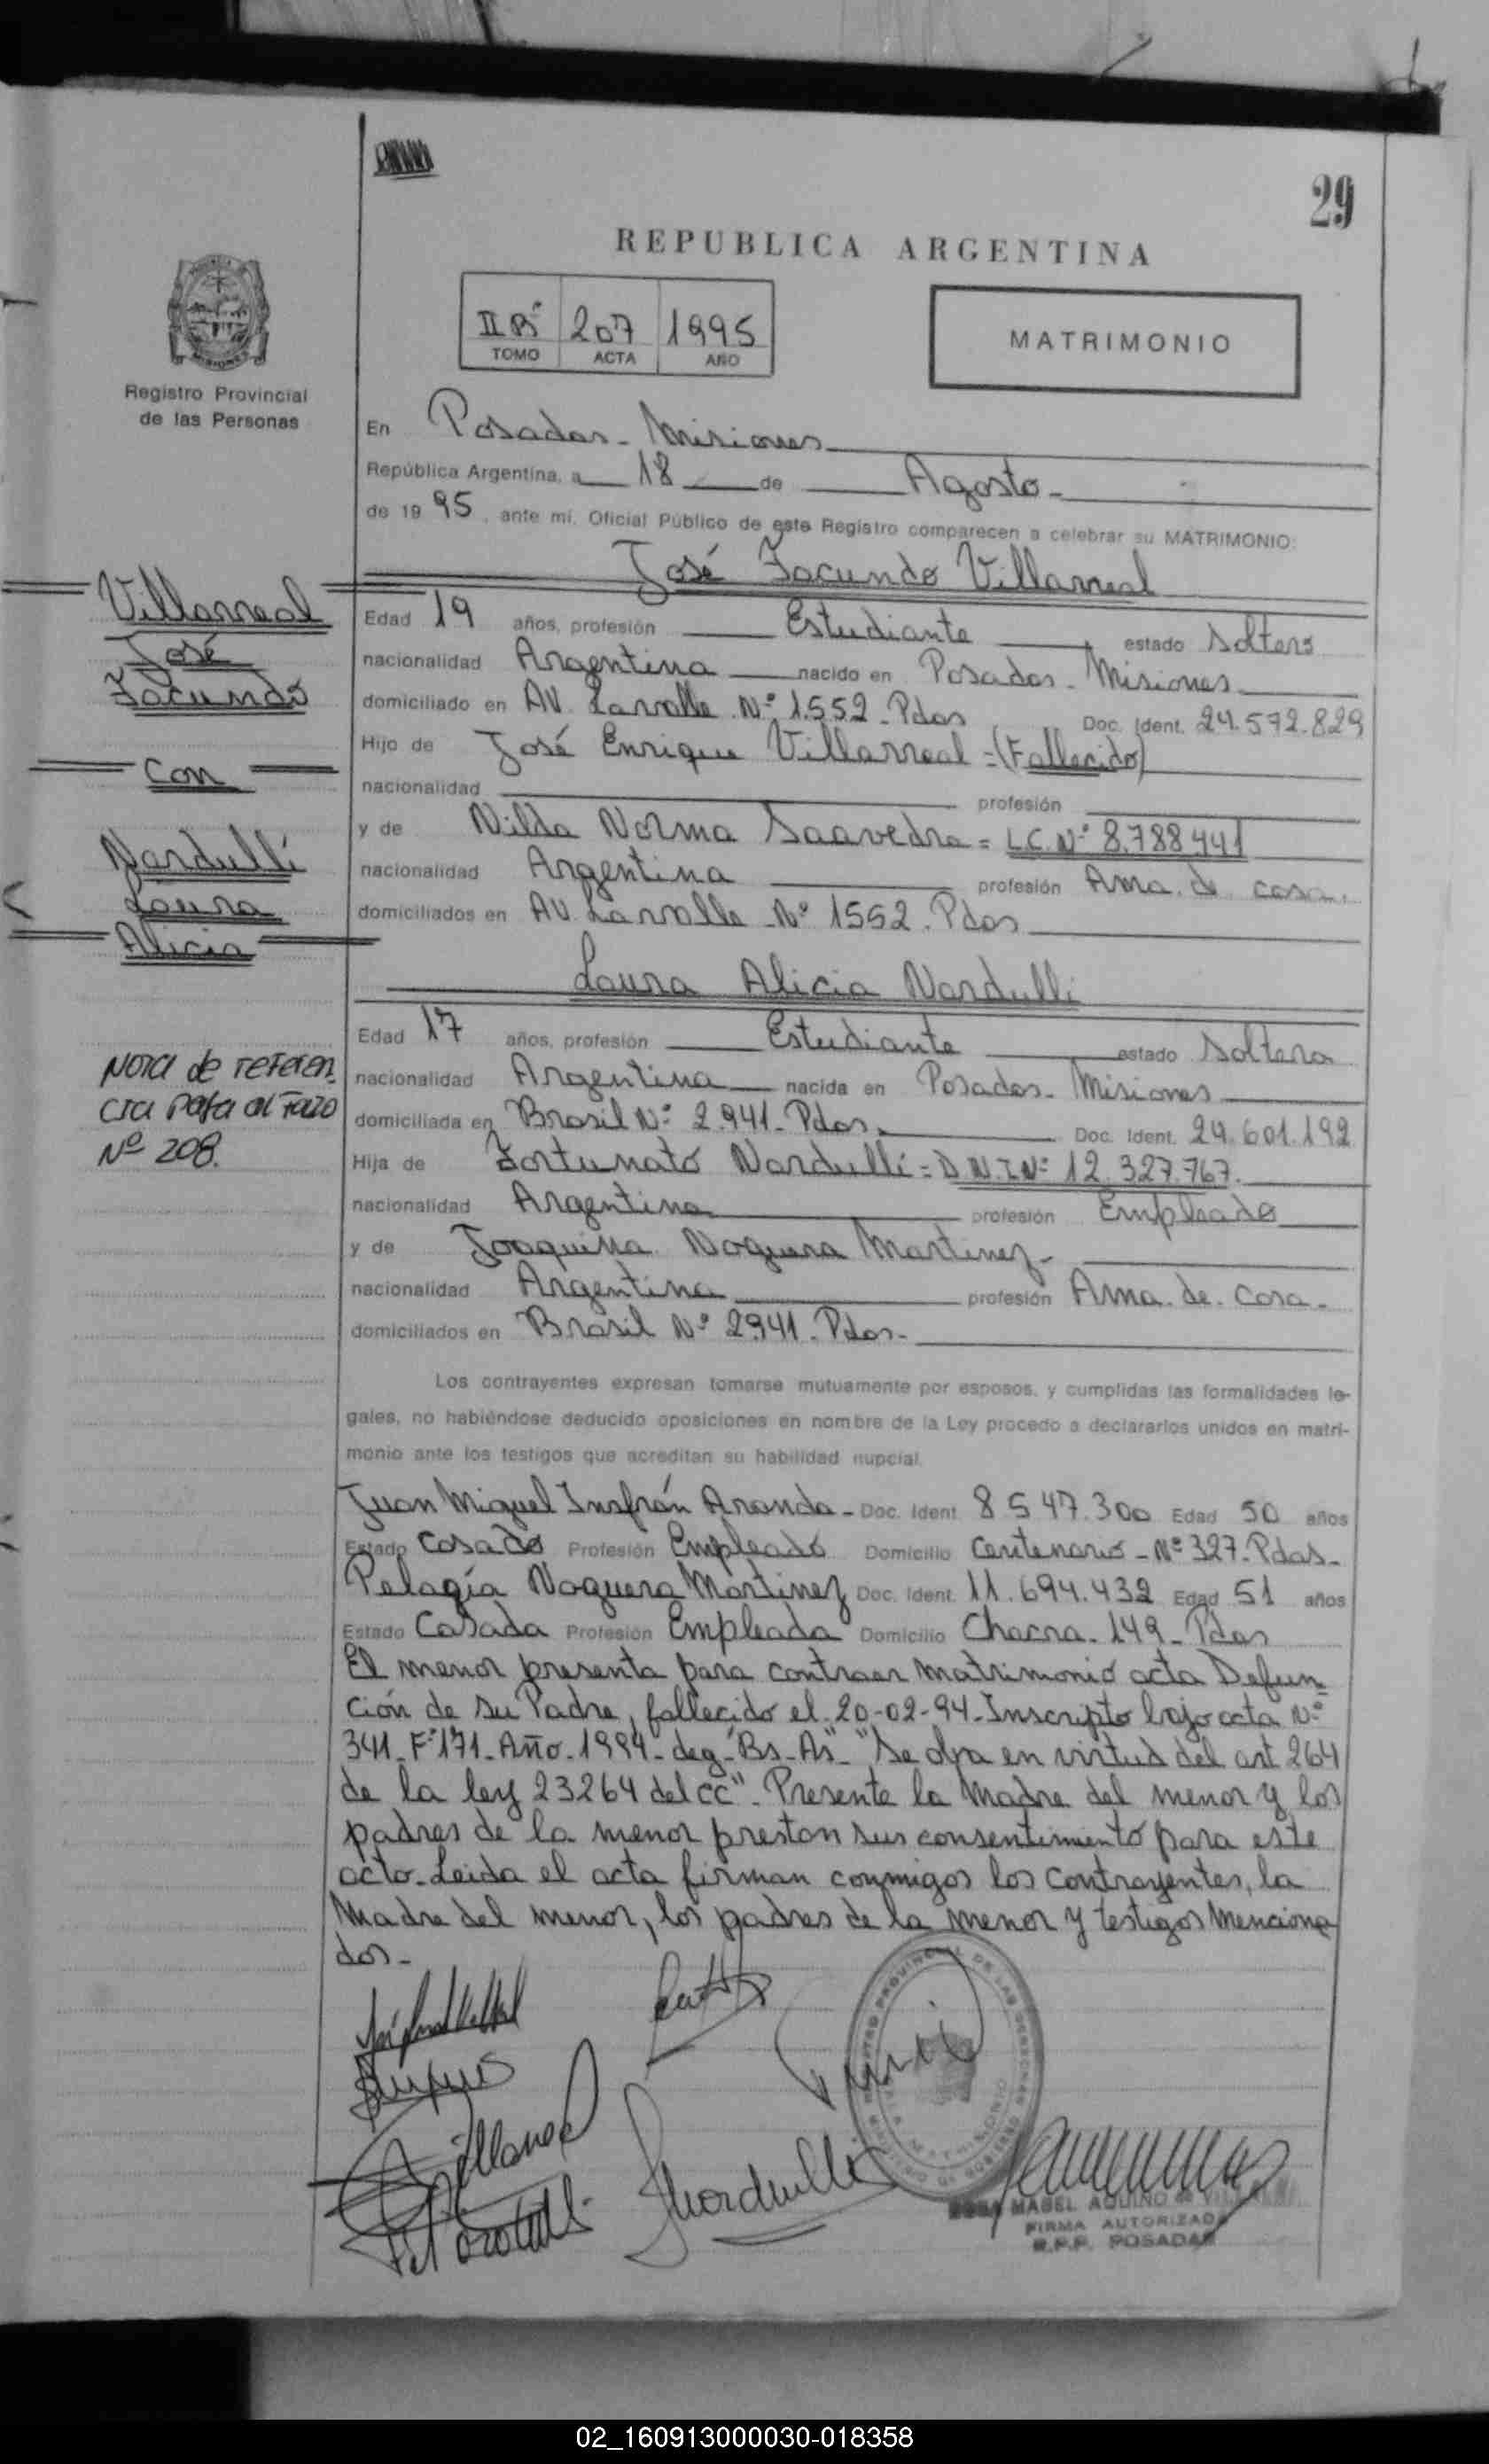 29
REPUBLICA ARGENTINA
IIBº 207 1995
TOMO ACTA AÑO
MATRIMONIO
Registro Provincial
de las Personas
En Posadas - Misiones
República Argentina, a 18 de Agosto -
de 1995, ante mí, Oficial Público de este Registro comparecen a celebrar su MATRIMONIO:
José Facundo Villarreal
Edad 19 años, profesión Estudiante estado Soltero
nacionalidad Argentina nacido en Posadas - Misiones
domiciliado en AV. Lavalle Nº 1.552 - Pdas Doc. Ident. 24.572.829
Hijo de José Enrique Villarreal = (Fallecido)
nacionalidad profesión
y de Nilda Norma Saavedra = L.C. Nº 8.788441
nacionalidad Argentina profesión Ama. de casa.
domiciliados en AV. Lavalle Nº 1552. Pdas
Laura Alicia Nardulli
Edad 17 años, profesión Estudiante estado Soltera
nacionalidad Argentina nacida en Posadas - Misiones
domiciliada en Brasil Nº 2.941 - Pdas. Doc. Ident. 24.601.192
Hija de Fortunato Nardulli = D.N.I Nº 12.327.767.
nacionalidad Argentina profesión Empleado
y de Joaquina Noguera Martinez -
nacionalidad Argentina profesión Ama. de. Casa -
domiciliados en Brasil Nº 2941. Pdas -
Villarreal
José
Facundo
Con
Nardulli
Laura
Alicia
Nota de referen
cia para al Fazo
Nº 208.
Los contrayentes expresan tomarse mutuamente por esposos, y cumplidas las formalidades le-
gales, no habiéndose deducido oposiciones en nombre de la Ley procedo a declararlos unidos en matri-
monio ante los testigos que acreditan su habilidad nupcial.
Juan Miguel Insfrán Aranda - Doc. Ident. 8.547.300 Edad 50 años
Estado Casado Profesión Empleado Domicilio Centenario - Nº 327. Pdas -
Pelagía Noguera Martinez Doc. Ident. 11.694.432 Edad 51 años
Estado Casada Profesión Empleada Domicilio Chacra. 149 - Pdas
El menor presenta para contraer matrimonio acta Defun
ción de su Padre, fallecido el 20-02-94 - Inscripto bajo acta Nº
341 - Fº 171 - Año - 1994 - deg - "Bs - As" - "Se obra en virtud del art 264
de la ley 23264 del CC" - Presente la Madre del menor y los
padres de la menor prestan sus consentimiento para este
acto. Leida el acta firman conmigos los contrayentes, la
Madre del menor, los padres de la menor y testigos menciona
dos -
MABEL AQUINO de
FIRMA AUTORIZADA
R.P.P. POSADAS
02_160913000030-018358